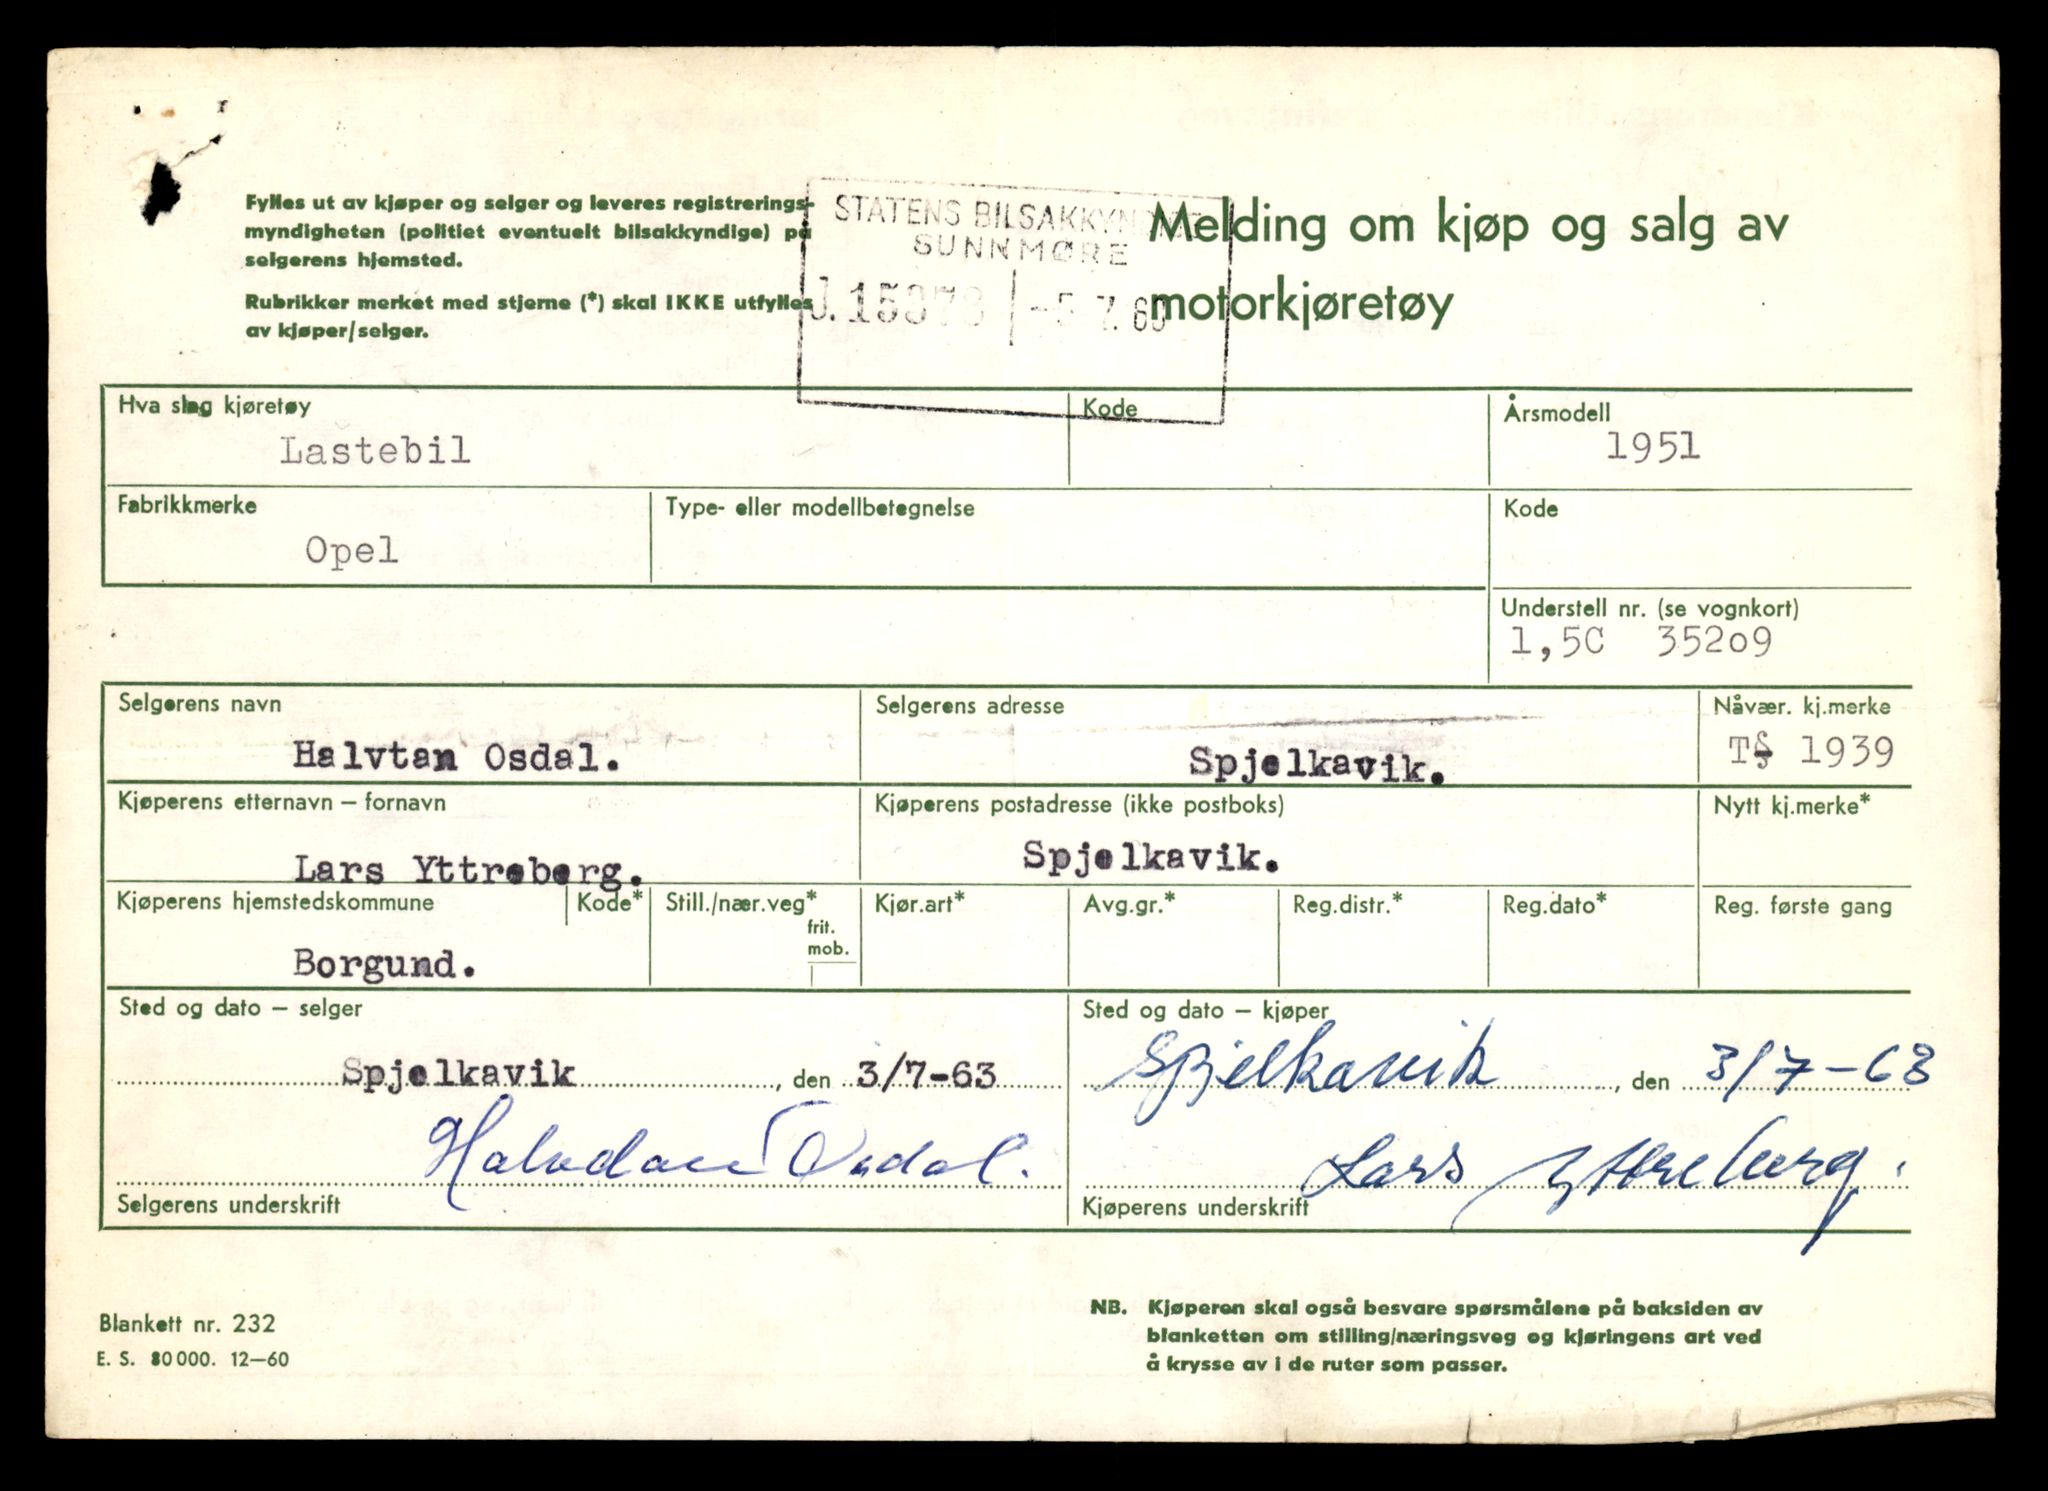 Fylles ut av kjøper og selger og leveres registrerings-
myndigheten (politiet eventuelt bilsakkyndige) på
selgerens hjemsted.
Rubrikker merket med stjerne (*) skal IKKE utfylles
av kjøper/selger.
STATENS BILSAKKYNDIGE
SUNNMØRE
J. 15378 -5 7. 63
Melding om kjøp og salg av
motorkjøretøy
Hva slag kjøretøy
Lastebil
Kode
Årsmodell
1951
Fabrikkmerke
Opel
Type- eller modellbetegnelse
Kode
Understell nr. (se vognkort)
1,5C 35209
Selgerens navn
Halvtan Osdal.
Selgerens adresse
Spjelkavik.
Nåvær. kj.merke
T 1939
Kjøperens etternavn – fornavn
Lars Yttreberg.
Kjøperens postadresse (ikke postboks)
Spjelkavik.
Nytt kj.merke*
Kjøperens hjemstedskommune
Borgund.
Kode*
Still./nær.veg*
frit.
mob.
Kjør.art*
Avg.gr.*
Reg.distr.*
Reg.dato*
Reg. første gang
Sted og dato – selger
Spjelkavik, den 3/7-63
Halvdan Osdal.
Selgerens underskrift
Sted og dato – kjøper
Spjelkavik, den 3/7-63
Lars Yttreberg.
Kjøperens underskrift
Blankett nr. 232
E. S. 80 000. 12–60
NB. Kjøperen skal også besvare spørsmålene på baksiden av
blanketten om stilling/næringsveg og kjøringens art ved
å krysse av i de ruter som passer.